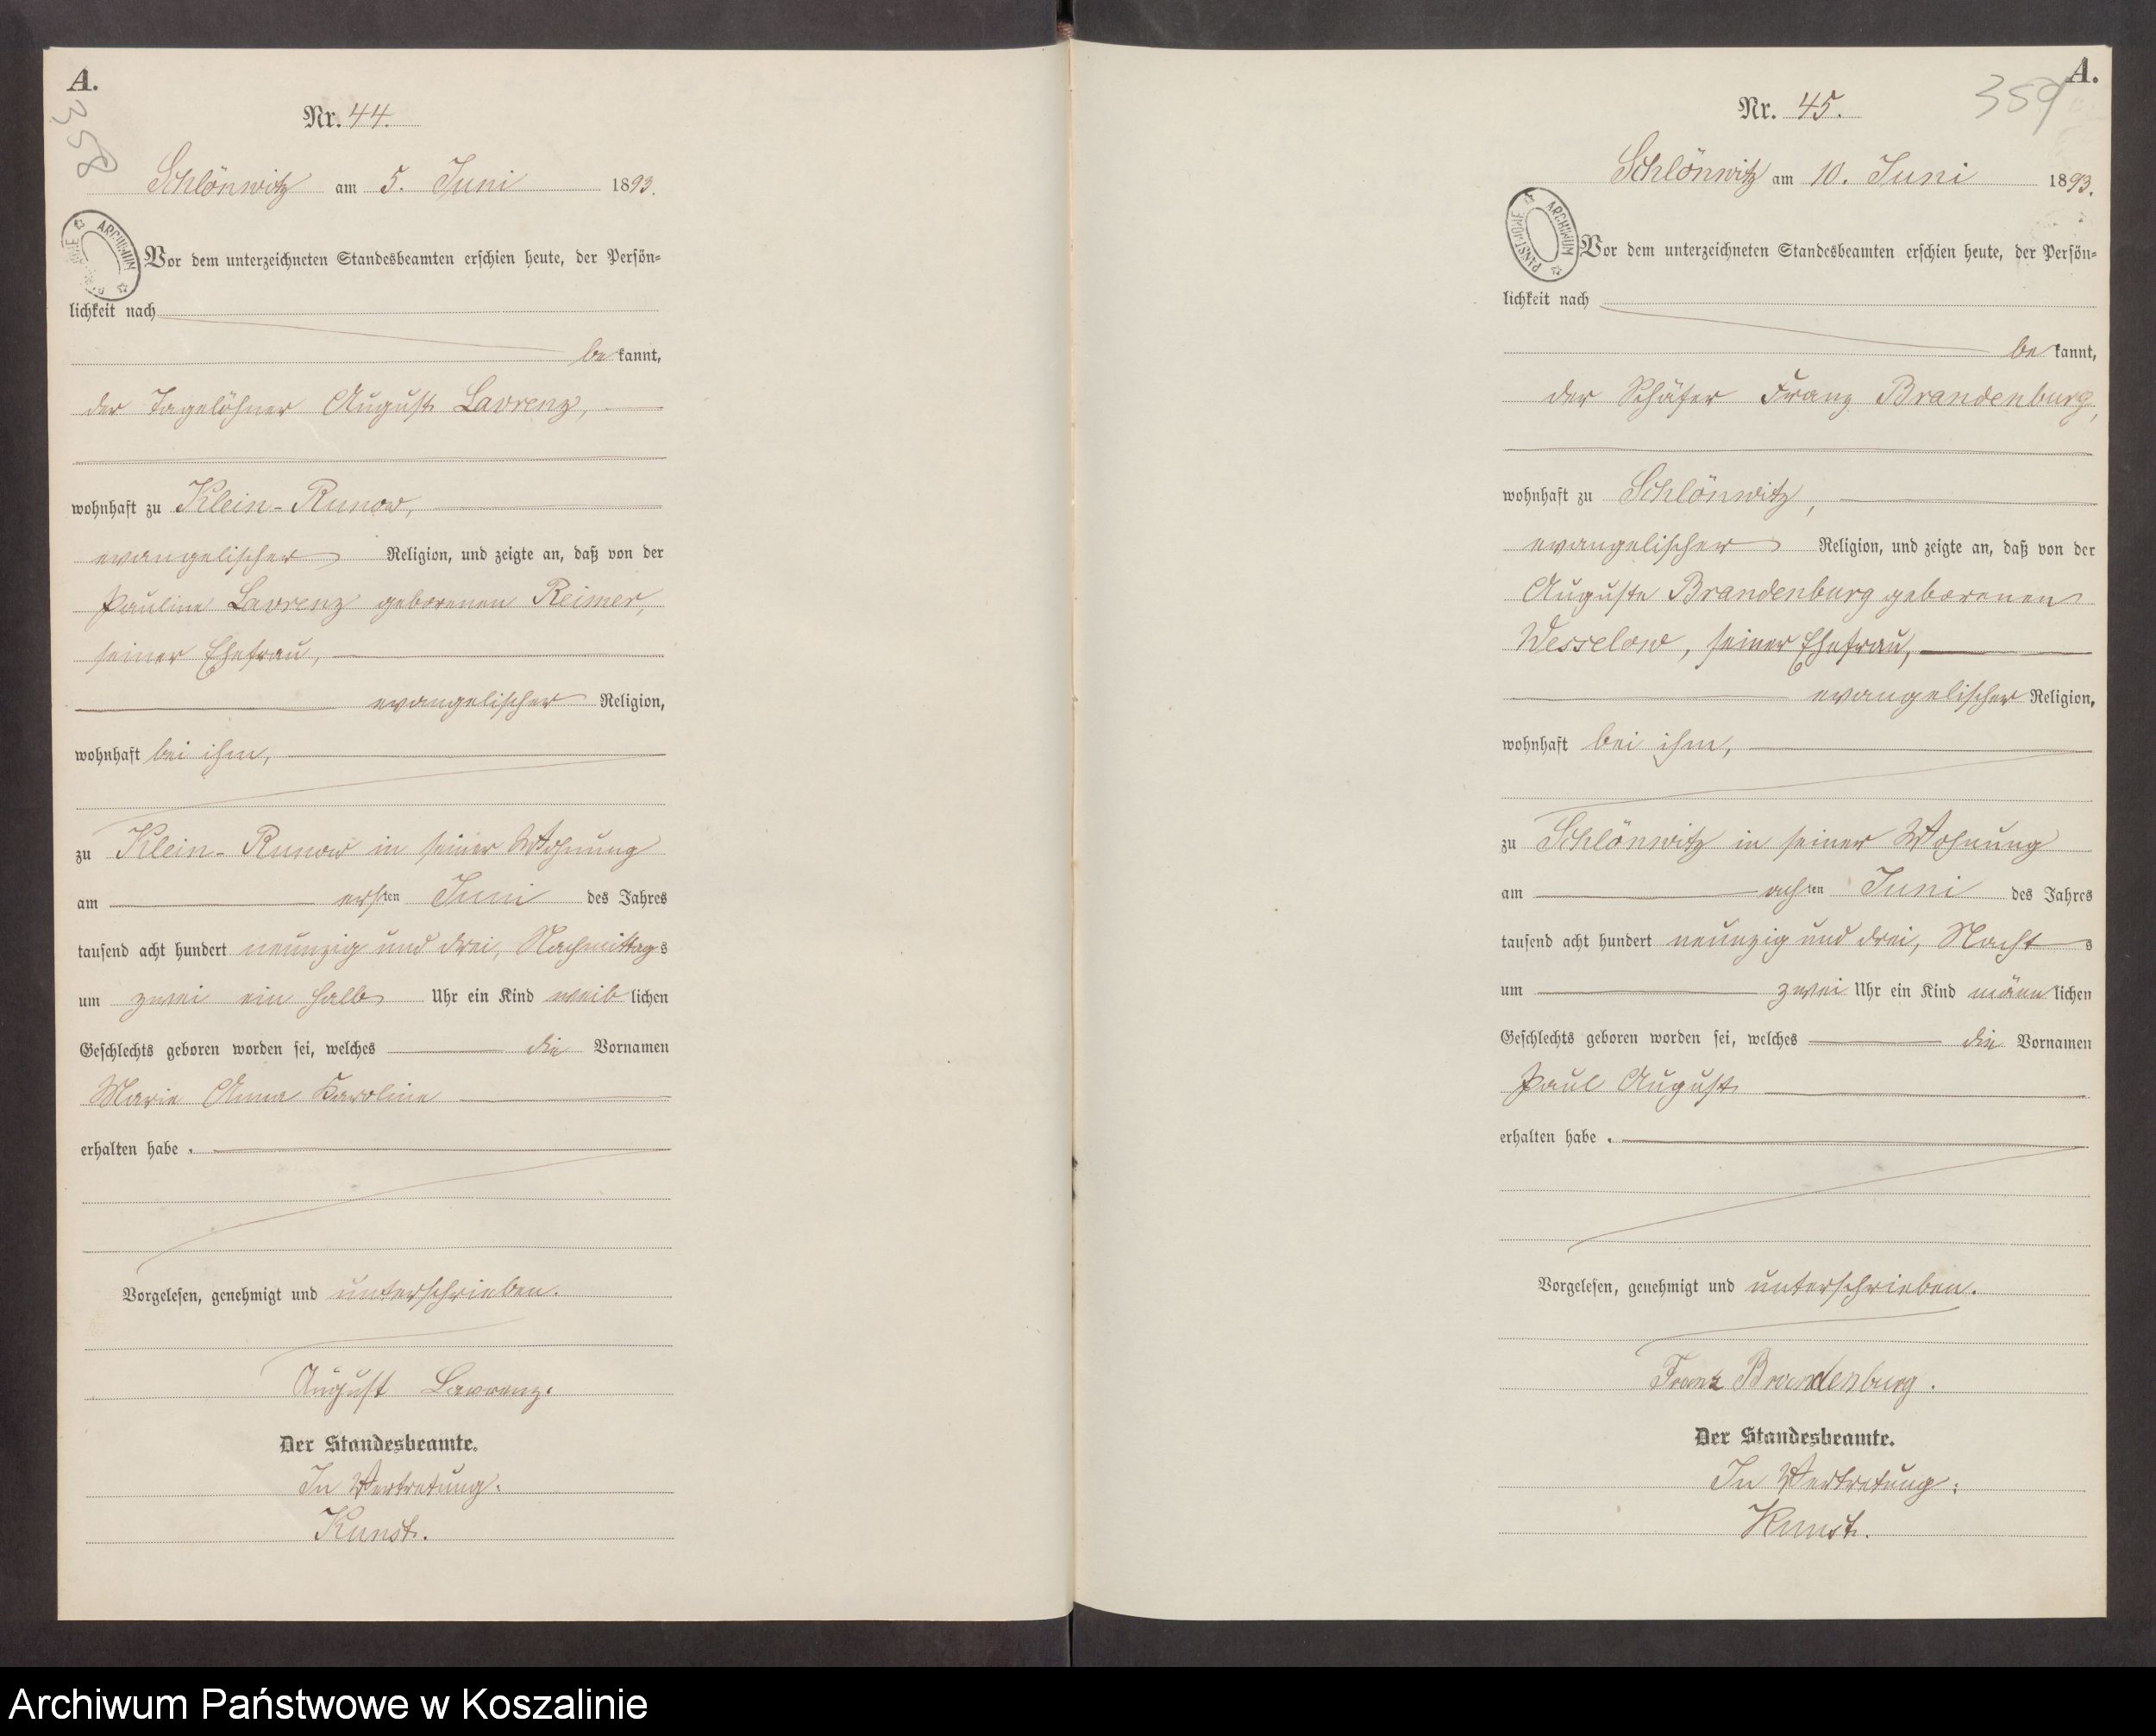 A.
358
Nr. 44.
Schlönwitz am 5. Juni 1893.
ARCHIWUM
Vor dem unterzeichneten Standesbeamten erschien heute, der Persön-
lichkeit nach
be kannt,
der Tagelöhner August Lavrenz,
wohnhaft zu Klein-Runow,
evangelischer Religion, und zeigte an, daß von der
Pauline Lavrenz geborenen Reimer,
seiner Ehefrau,
evangelischer Religion,
wohnhaft bei ihm,
zu Klein-Runow in seiner Wohnung
am ersten Juni des Jahres
tausend acht hundert neunzig und drei, Nachmittags
um zwei ein halb Uhr ein Kind weiblichen
Geschlechts geboren worden sei, welches die Vornamen
Marie Anna Karoline
erhalten habe.
Vorgelesen, genehmigt und unterschrieben.
August Lavrenz.
Der Standesbeamte.
In Vertretung:
Kunst.
A.
359
Nr. 45.
Schlönwitz am 10. Juni 1893.
ARCHIWUM PAŃSTWOWE
Vor dem unterzeichneten Standesbeamten erschien heute, der Persön-
lichkeit nach
be kannt,
der Schäfer Franz Brandenburg,
wohnhaft zu Schlönwitz,
evangelischer Religion, und zeigte an, daß von der
Auguste Brandenburg geborenen
Wesselow, seiner Ehefrau,
evangelischer Religion,
wohnhaft bei ihm,
zu Schlönwitz in seiner Wohnung
am achten Juni des Jahres
tausend acht hundert neunzig und drei, Nachts
um zwei Uhr ein Kind männlichen
Geschlechts geboren worden sei, welches die Vornamen
Paul August
erhalten habe.
Vorgelesen, genehmigt und unterschrieben.
Franz Brandenburg.
Der Standesbeamte.
In Vertretung:
Kunst.
Archiwum Państwowe w Koszalinie